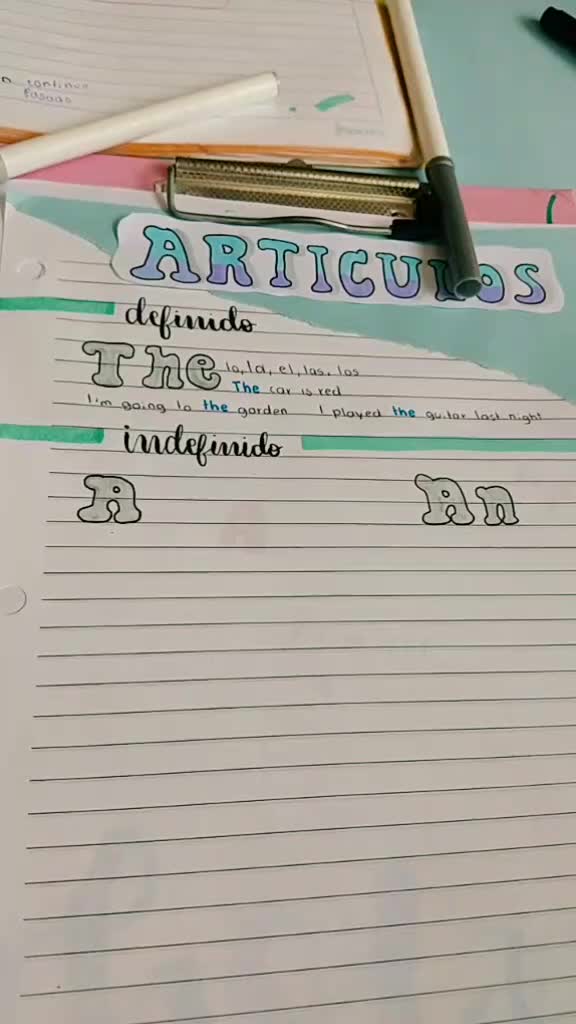 n continuo
Pasado
ARTICULOS
definido
The lo, la, el, las, los
The car is red
I'm going to the garden I played the guitar last night
indefinido
A An